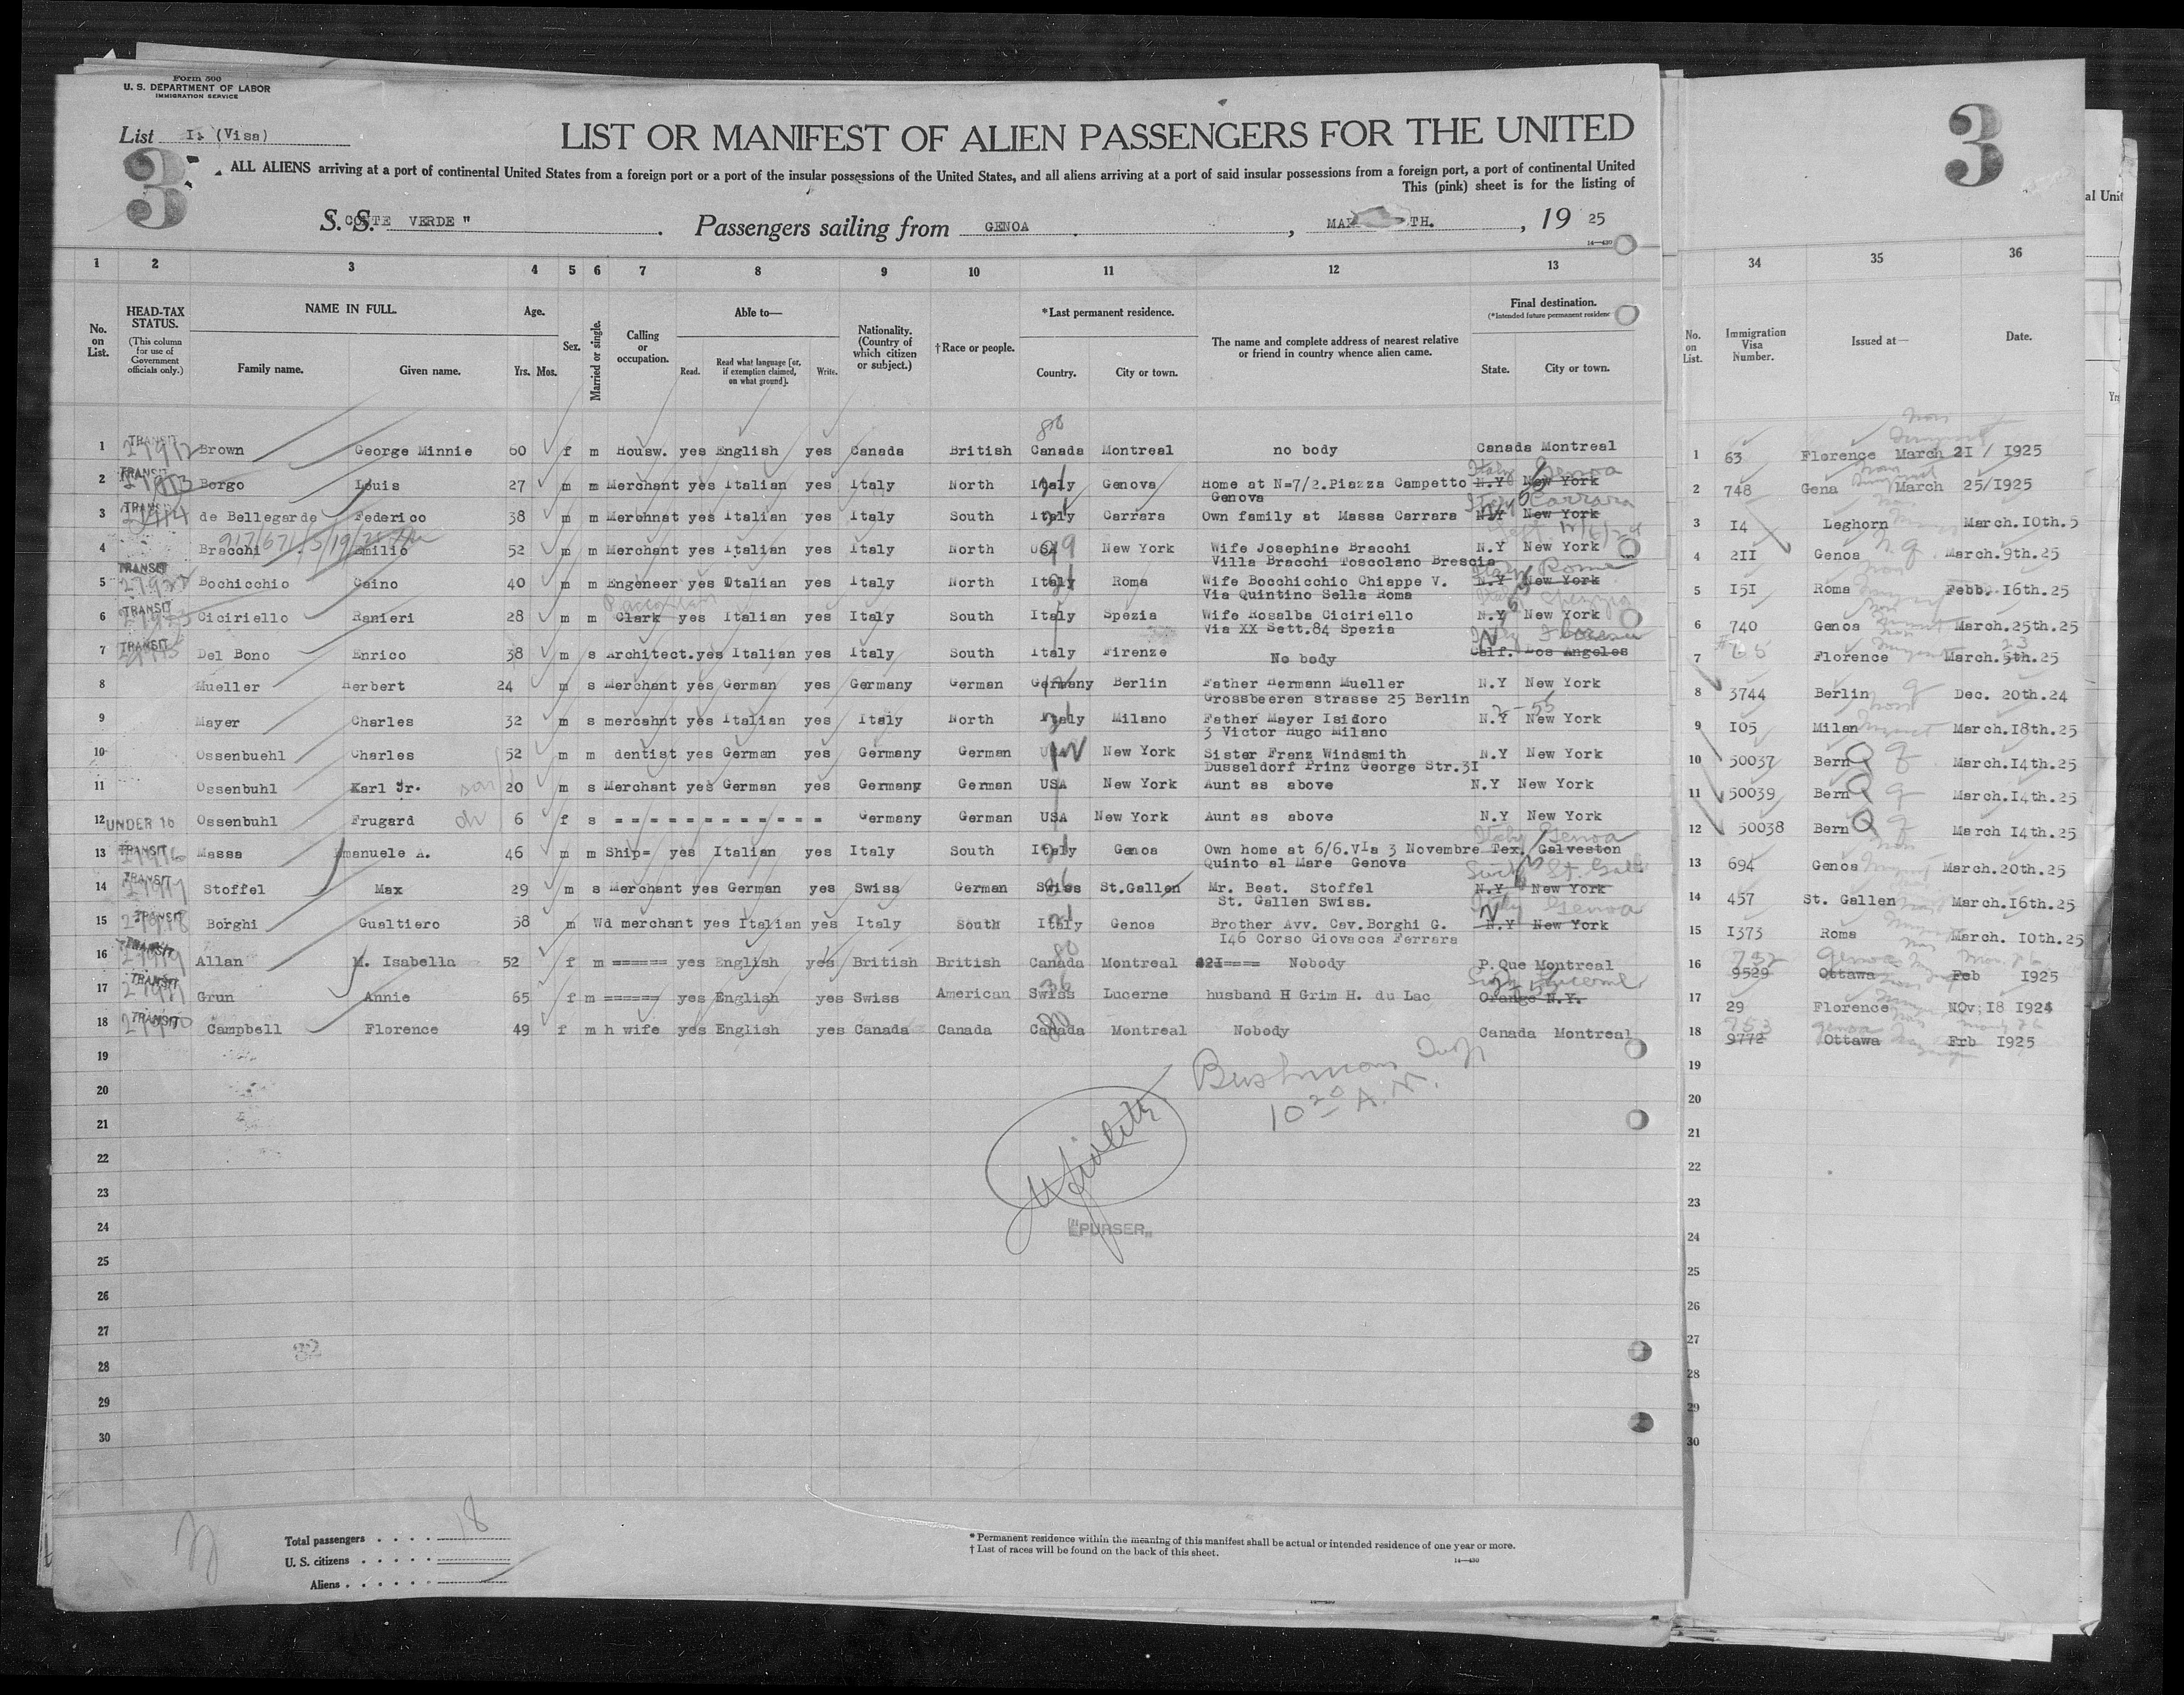 Form 500
U. S. DEPARTMENT OF LABOR
IMMIGRATION SERVICE
List (Visa)
3
3
LIST OR MANIFEST OF ALIEN PASSENGERS FOR THE UNITED
ALL ALIENS arriving at a port of continental United States from a foreign port or a port of the insular possessions of the United States, and all aliens arriving at a port of said insular possessions from a foreign port, a port of continental United
This (pink) sheet is for the listing of
al Unit
S. S. CONTE VERDE " Passengers sailing from GENOA , TH. , 19 25
14—430
1 2 3 4 5 6 7 8 9 10 11 12 13 34 35 36
No. on List. HEAD-TAX STATUS. (This column for use of Government officials only.) NAME IN FULL. Family name. Given name. Age. Yrs. Mos. Sex. Married or single. Calling or occupation. Able to— Read. Read what language [or, if exemption claimed, on what ground]. Write. Nationality. (Country of which citizen or subject.) †Race or people. *Last permanent residence. Country. City or town. The name and complete address of nearest relative or friend in country whence alien came. Final destination. (*Intended future permanent residenc State. City or town. No. on List. Immigration Visa Number. Issued at— Date.
1 TRANSIT Brown George Minnie 60 f m Housw. yes English yes Canada British Canada Montreal no body Canada Montreal 1 63 Florence March 2I / I925
Italy Genoa
2 TRANSIT Borgo Louis 27 m m Merchant yes Italian yes Italy North Italy Genova Home at N=7/2.Piazza Campetto N.Y New York 2 748 Gena March 25/I925
Genova Carrara
3 TRANSIT de Bellegarde Federico 38 m m Merchnat yes Italian yes Italy South Italy Carrara Own family at Massa Carrara N.Y New York 3 I4 Leghorn March.I0th.5
4 Bracchi Emilio 52 m m Merchant yes Italian yes Italy North USA New York Wife Josephine Bracchi N.Y New York 4 2II Genoa March.9th.25
Villa Bracchi Toscolano Brescia Roma
5 TRANSIT Bochicchio Caino 40 m m Engeneer yes Italian yes Italy North Italy Roma Wife Bocchicchio Chiappe V. N.Y New York 5 I5I Roma Febb. I6th.25
Via Quintino Sella Roma
6 TRANSIT Ciciriello Ranieri 28 m m Clark yes Italian yes Italy South Italy Spezia Wife Rosalba Ciciriello N.Y New York 6 740 Genoa March.25th.25
Via XX Sett.84 Spezia
7 TRANSIT Del Bono Enrico 38 m s Architect.yes Italian yes Italy South Italy Firenze No body Calf. Los Angeles 7 Florence March.5th.25
8 Mueller Herbert 24 m s Merchant yes German yes Germany German Germany Berlin Father Hermann Mueller N.Y New York 8 3744 Berlin Dec. 20th.24
Grossbeeren strasse 25 Berlin
9 Mayer Charles 32 m s mercahnt yes Italian yes Italy North Italy Milano Father Mayer Isidoro N.Y New York 9 I05 Milan March.I8th.25
3 Victor Hugo Milano
10 Ossenbuehl Charles 52 m m dentist yes German yes Germany German New York Sister Franz Windsmith N.Y New York 10 50037 Bern March.I4th.25
Dusseldorf Prinz George Str.3I
11 Ossenbuhl Karl Jr. son 20 m s Merchant yes German yes Germany German USA New York Aunt as above N.Y New York 11 50039 Bern March.I4th.25
12 UNDER 16 Ossenbuhl Frugard 6 f s = = = = = = = = = = = = Germany German USA New York Aunt as above N.Y New York 12 50038 Bern March I4th.25
Italy Genoa
13 TRANSIT Massa Emanuele A. 46 m m Ship= yes Italian yes Italy South Italy Genoa Own home at 6/6.VIa 3 Novembre Tex. Galveston 13 694 Genoa March.20th.25
Quinto al Mare Genova
14 TRANSIT Stoffel Max 29 m s Merchant yes German yes Swiss German Swiss St.Gallen Mr. Beat. Stoffel N.Y New York 14 457 St. Gallen March.I6th.25
St. Gallen Swiss. Italy Genoa
15 TRANSIT Borghi Gualtiero 58 m Wd merchant yes Italian yes Italy South Italy Genoa Brother Avv. Cav.Borghi G. N.Y New York 15 I373 Roma March. I0th.25
I46 Corso Giovacca Ferrara
16 TRANSIT Allan M. Isabella 52 f m ====== yes English yes British British Canada Montreal Nobody P.Que Montreal 16 9529 Ottawa Feb I925
17 TRANSIT Grun Annie 65 f m ====== yes English yes Swiss American Swiss Lucerne husband H Grim H. du Lac Orange N.Y. 17 29 Florence NOv;I8 I924
18 TRANSIT Campbell Florence 49 f m h wife yes English yes Canada Canada Canada Montreal Nobody Canada Montreal 18 753 Genoa 9772 Ottawa Frb I925
19 19
20 20
21 21
22 22
23 23
24 24
25 25
26 26
27 27
28 28
29 29
30 30
Bushman
10 20 A.M.
"PURSER"
32
Total passengers 18
U. S. citizens
Aliens
* Permanent residence within the meaning of this manifest shall be actual or intended residence of one year or more.
† List of races will be found on the back of this sheet.
14—430